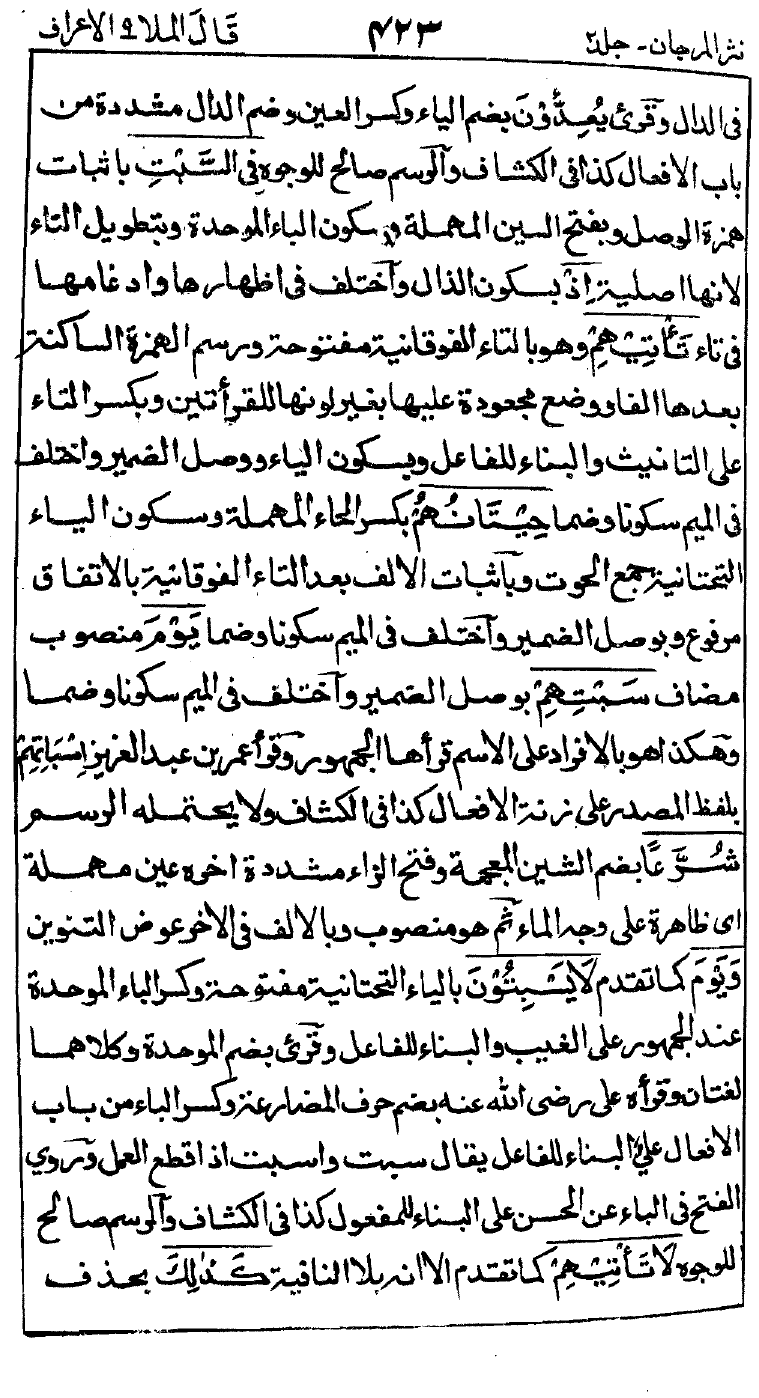 نثر المرجان - جلد ٢ ٤٢٣ قال الملا ٩ الاعراف
فى الدال وقرئ يُعِدُّوْنَ بضم الياء وكسر العين وضم الدال مشددة من
باب الافعال كذا فى الكشاف والرسم صالح للوجوه فِى السَّبْتِ باثبات
همزة الوصل وبفتح السين المهملة وسكون الباء الموحدة وبتطويل التاء
لانها اصلية اِذْ بسكون الذال واختلف فى اظهارها وادغامها
فى تاء تَأْتِيْهِمْ وهو بالتاء الفوقانية مفتوحة ورسم الهمزة الساكنة
بعدها الفا ووضع مجعودة عليها بغير لونها للقرأتين وبكسر التاء
على التانيث والبناء للفاعل وبسكون الياء ووصل الضمير واختلف
فى الميم سكونا وضما حِيْتَانُهُمْ بكسر الحاء المهملة وسكون الياء
التحتانية جمع الحوت وباثبات الالف بعد التاء الفوقانية بالاتفاق
مرفوع وبوصل الضمير واختلف فى الميم سكونا وضما يَوْمَ منصوب
مضاف سَبْتِهِمْ بوصل الضمير واختلف فى الميم سكونا وضما
وهكذا هو بالافراد على الاسم قرأها الجمهور وقرأ عمر بن عبد العزيز اِسْبَاتِهِمْ
بلفظ المصدر على زنة الافعال كذا فى الكشاف ولا يحتمله الرسم
شُرَّعًا بضم الشين المعجمة وفتح الراء مشددة اخره عين مهملة
اى ظاهرة على وجه الماء ثم هو منصوب وبالالف فى الاخر عوض التنوين
وَيَوْمَ كما تقدم لَا يَسْبِتُوْنَ بالياء التحتانية مفتوحة وكسر الباء الموحدة
عند الجمهور على الغيب والبناء للفاعل وقرئ بضم الموحدة وكلاهما
لغتان وقرأه على رضى الله عنه بضم حرف المضارعة وكسر الباء من باب
الافعال على البناء للفاعل يقال سبت واسبت اذا قطع العمل وروي
الفتح فى الباء عن الحسن على البناء للمفعول كذا فى الكشاف والرسم صالح
للوجوه لَا تَأْتِيْهِمْ كما تقدم الا انه بلا النافية كَذٰلِكَ بحذف